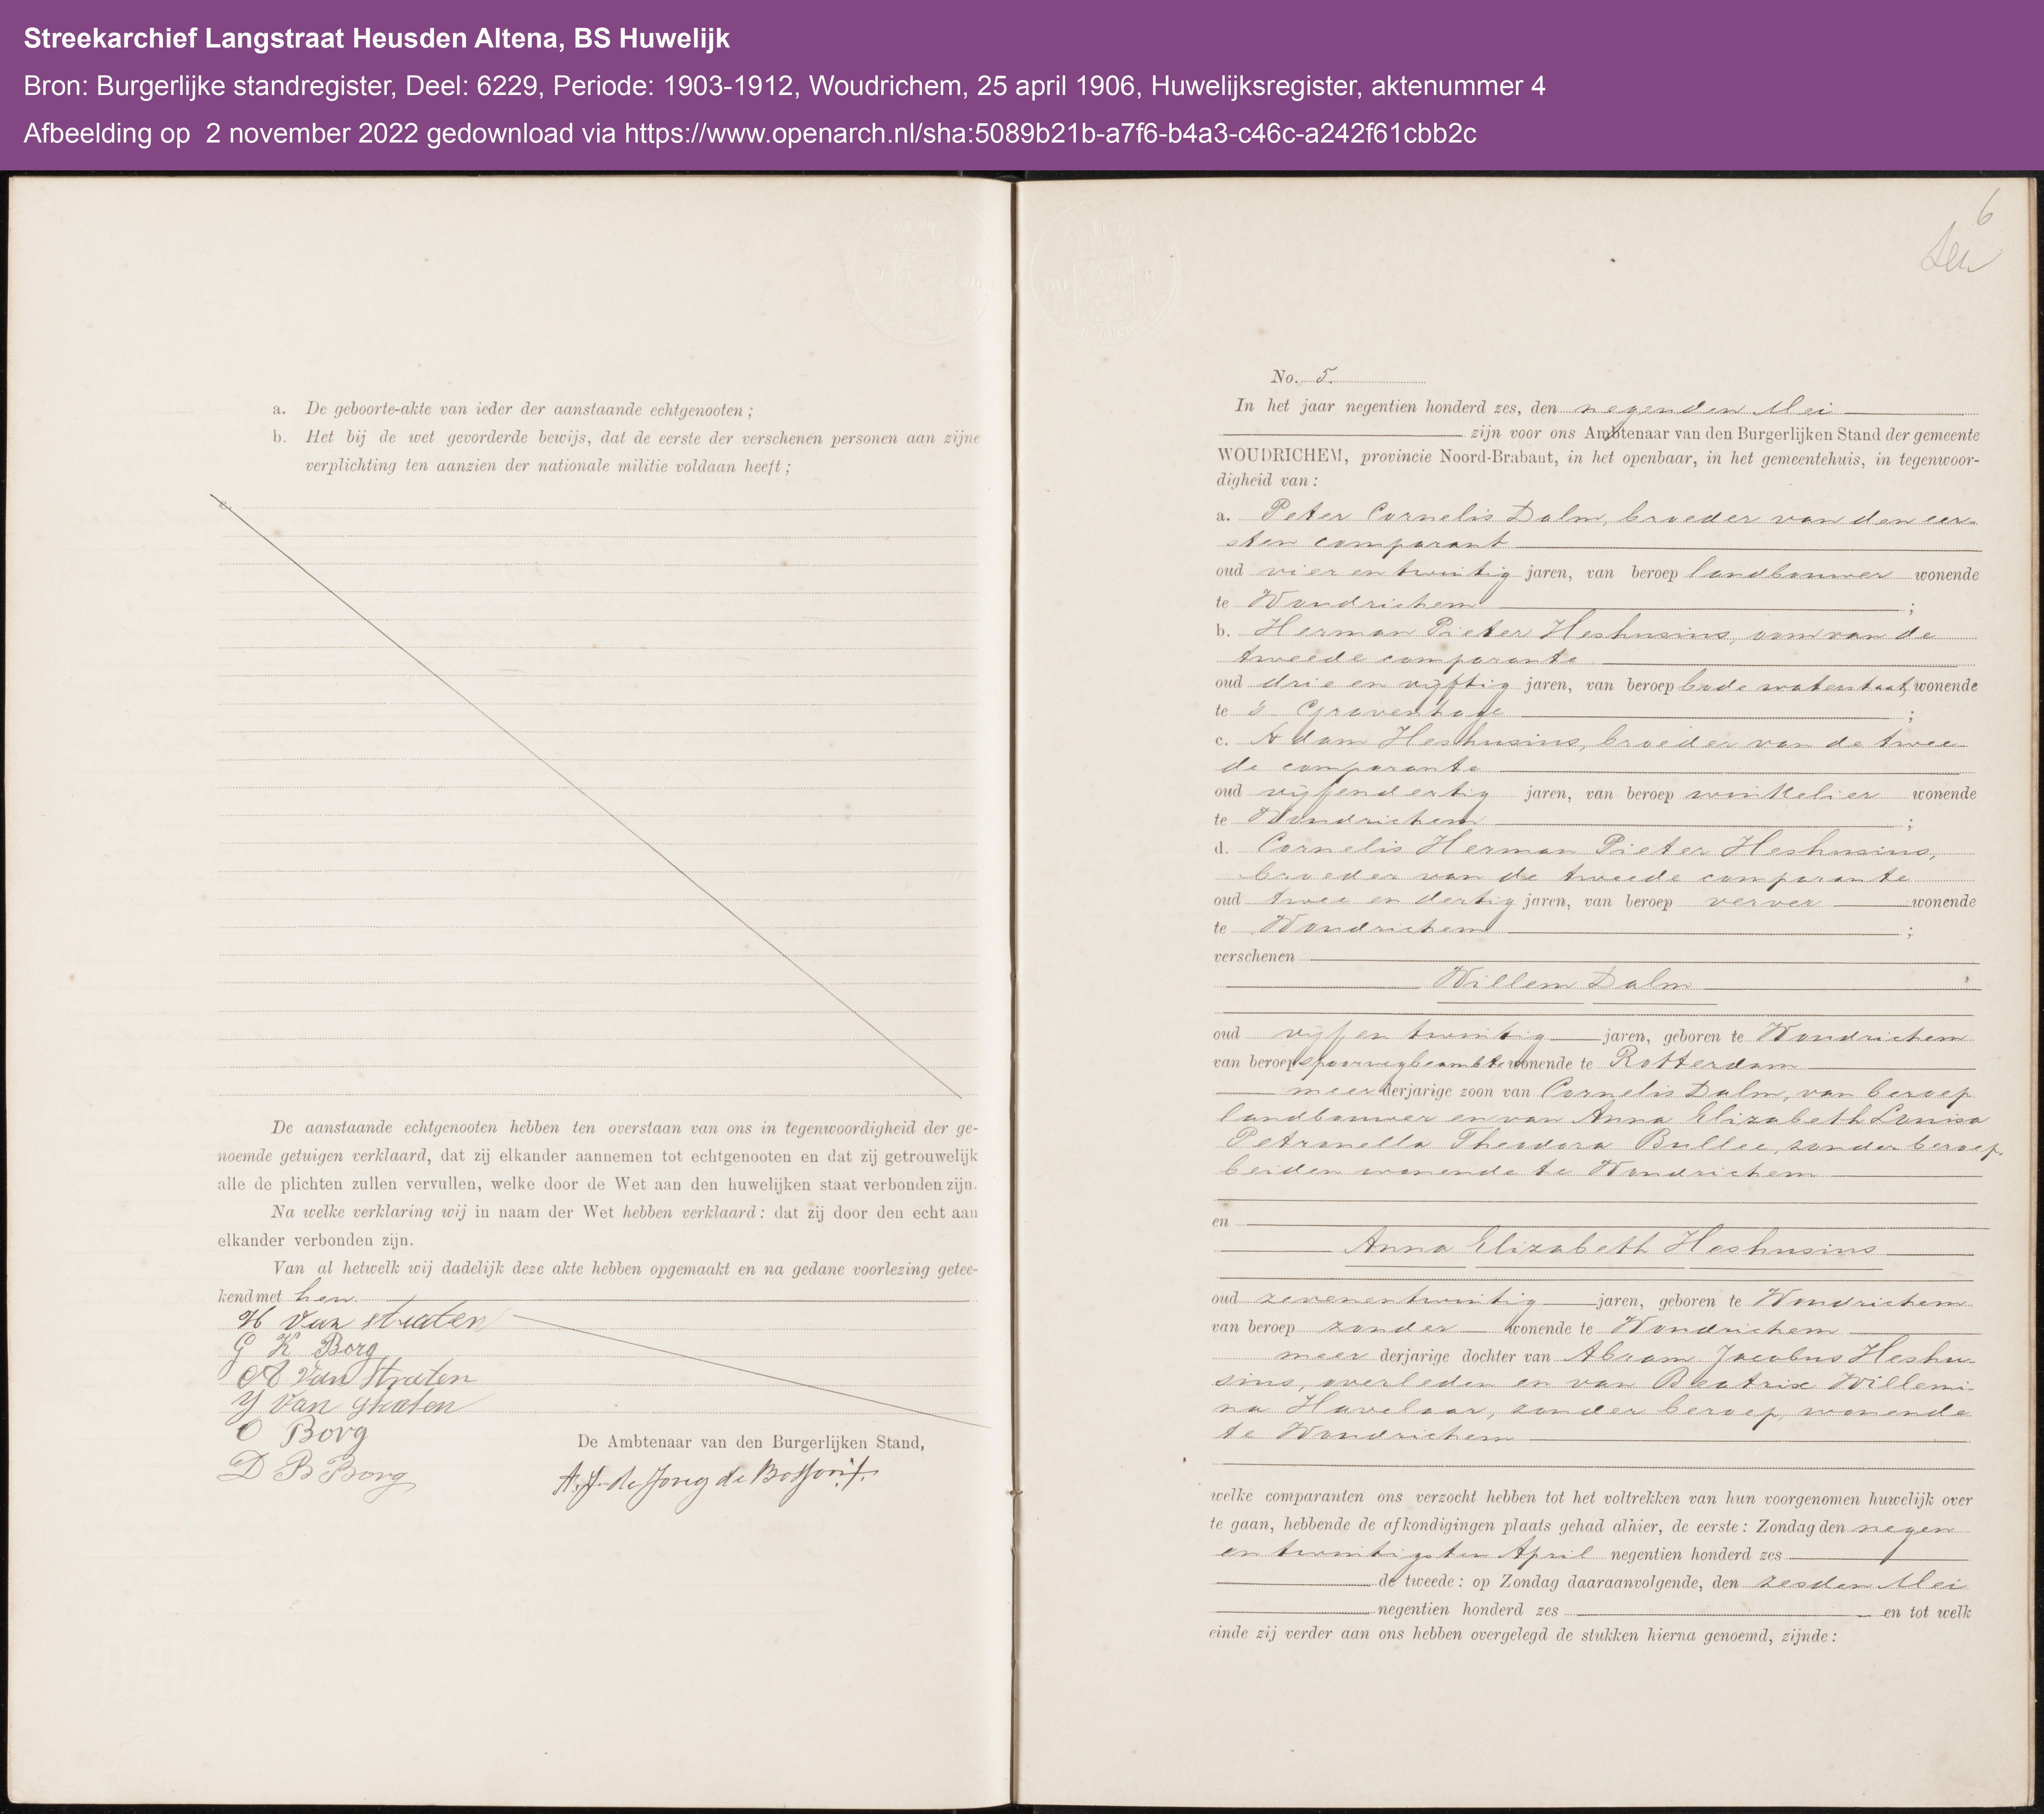 Streekarchief Langstraat Heusden Altena, BS Huwelijk
Bron: Burgerlijke standregister, Deel: 6229, Periode: 1903-1912, Woudrichem, 25 april 1906, Huwelijksregister, aktenummer 4
Afbeelding op  2 november 2022 gedownload via https://www.openarch.nl/sha:5089b21b-a7f6-b4a3-c46c-a242f61cbb2c
a. De geboorte-akte van ieder der aanstaande echtgenooten;
b. Het bij de wet gevorderde bewijs, dat de eerste der verschenen personen aan zijne
verplichting ten aanzien der nationale militie voldaan heeft;
c.
De aanstaande echtgenooten hebben ten overstaan van ons in tegenwoordigheid der ge-
noemde getuigen verklaard, dat zij elkander aannemen tot echtgenooten en dat zij getrouwelijk
alle de plichten zullen vervullen, welke door de Wet aan den huwelijken staat verbonden zijn.
Na welke verklaring wij in naam der Wet hebben verklaard: dat zij door den echt aan
elkander verbonden zijn.
Van al hetwelk wij dadelijk deze akte hebben opgemaakt en na gedane voorlezing getee-
kend met hen.
H van Straten
G K Borg
A van Straten
Y van Straten
C Borg
D B Borg
De Ambtenaar van den Burgerlijken Stand,
6
No. 5.
In het jaar negentien honderd zes, den negenden Mei
zijn voor ons Ambtenaar van den Burgerlijken Stand der gemeente
WOUDRICHEM, provincie Noord-Brabant, in het openbaar, in het gemeentehuis, in tegenwoor-
digheid van:
a. Peter Cornelis Dalm, broeder van den eer-
sten comparant
oud vier en twintig jaren, van beroep landbouwer wonende
te Woudrichem ;
b. Herman Pieter Heshusius, oom van de
tweede comparante
oud drie en vijftig jaren, van beroep bode waterstaat, wonende
te 's Gravenhage ;
c. Adam Heshusius, broeder van de twee
de comparante
oud vijfendertig jaren, van beroep winkelier wonende
te Woudrichem ;
d. Cornelis Herman Pieter Heshusius,
broeder van de tweede comparante
oud twee en dertig jaren, van beroep verver wonende
te Woudrichem ;
verschenen
Willem Dalm
oud vijf en twintig jaren, geboren te Woudrichem
van beroep spoorwegbeambte wonende te Rotterdam
meerderjarige zoon van Cornelis Dalm, van beroep
landbouwer en van Anna Elizabeth Louisa
Petronella Theodora Bullee, zonder beroep,
beiden wonende te Woudrichem
en
Anna Elizabeth Heshusius
oud zevenentwintig jaren, geboren te Woudrichem
van beroep zonder wonende te Woudrichem
meerderjarige dochter van Abram Jacobus Heshu-
sius, overleden en van Beatrix Willemi-
na Havelaar, zonder beroep, wonende
te Woudrichem
welke comparanten ons verzocht hebben tot het voltrekken van hun voorgenomen huwelijk over
te gaan, hebbende de afkondigingen plaats gehad alhier, de eerste: Zondag den negen
en twintigsten April negentien honderd zes
de tweede: op Zondag daaraanvolgende, den zesden Mei
negentien honderd zes en tot welk
einde zij verder aan ons hebben overgelegd de stukken hierna genoemd, zijnde: